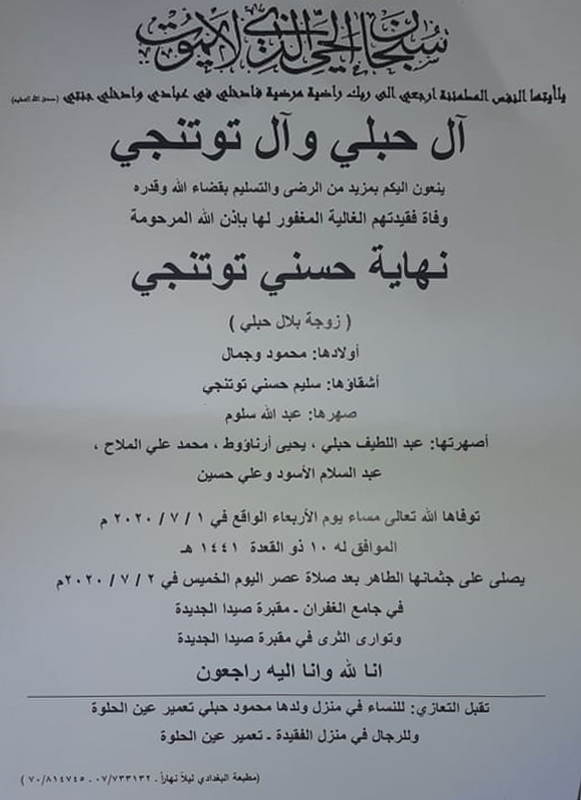 سبحان الحي الذي لا يموت
ياأيتها النفس المطمئنة ارجعي الى ربك راضية مرضية فادخلي في عبادي وادخلي جنتي (صدق الله العظيم)
آل حبلي وآل توتنجي
ينعون اليكم بمزيد من الرضى والتسليم بقضاء الله وقدره
وفاة فقيدتهم الغالية المغفور لها بإذن الله المرحومة
نهاية حسني توتنجي
( زوجة بلال حبلي )
أولادها: محمود وجمال
أشقاؤها: سليم حسني توتنجي
صهرها: عبد الله سلوم
أصهرتها: عبد اللطيف حبلي ، يحيى أرناؤوط ، محمد علي الملاح ،
عبد السلام الأسود وعلي حسين
توفاها الله تعالى مساء يوم الأربعاء الواقع في ١ / ٧ / ٢٠٢٠ م
الموافق له ١٠ ذو القعدة ١٤٤١ هـ
يصلى على جثمانها الطاهر بعد صلاة عصر اليوم الخميس في ٢ / ٧ / ٢٠٢٠م
في جامع الغفران - مقبرة صيدا الجديدة
وتوارى الثرى في مقبرة صيدا الجديدة
انا لله وانا اليه راجعون
تقبل التعازي: للنساء في منزل ولدها محمود حبلي تعمير عين الحلوة
وللرجال في منزل الفقيدة - تعمير عين الحلوة
(مطبعة البغدادي ليلاً نهاراً . ٠٧/٧٣٣١٣٢ - ٧٠/٨١٤٧٤٥ )